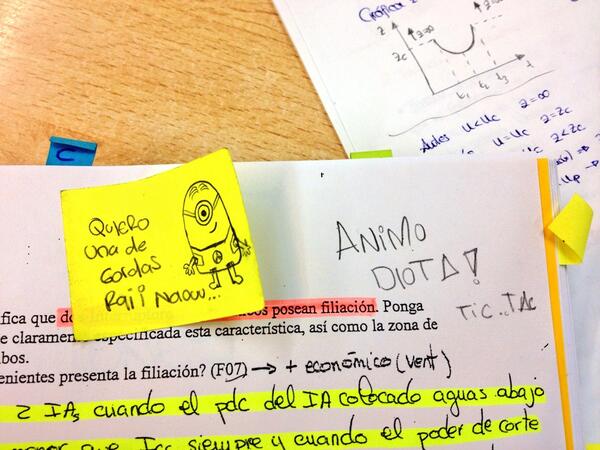 Gráfica 2
z
z=∞
Zc
t₁ t₂ t₃ t
Antes u<uc z=∞
u=uc z=Zc
z<Zc
C
QUIERO
UNA DE
Gordas
ANIMO
DIOTA!
TIC..TAC
ifica que dos posean filiación. Ponga
e claramente especificada esta característica, así como la zona de
bos.
enientes presenta la filiación? (F07) → + económico (vent)
2 IAs, cuando el pdc del IA colocado aguas abajo
menor que Icc siempre y cuando el poder de corte